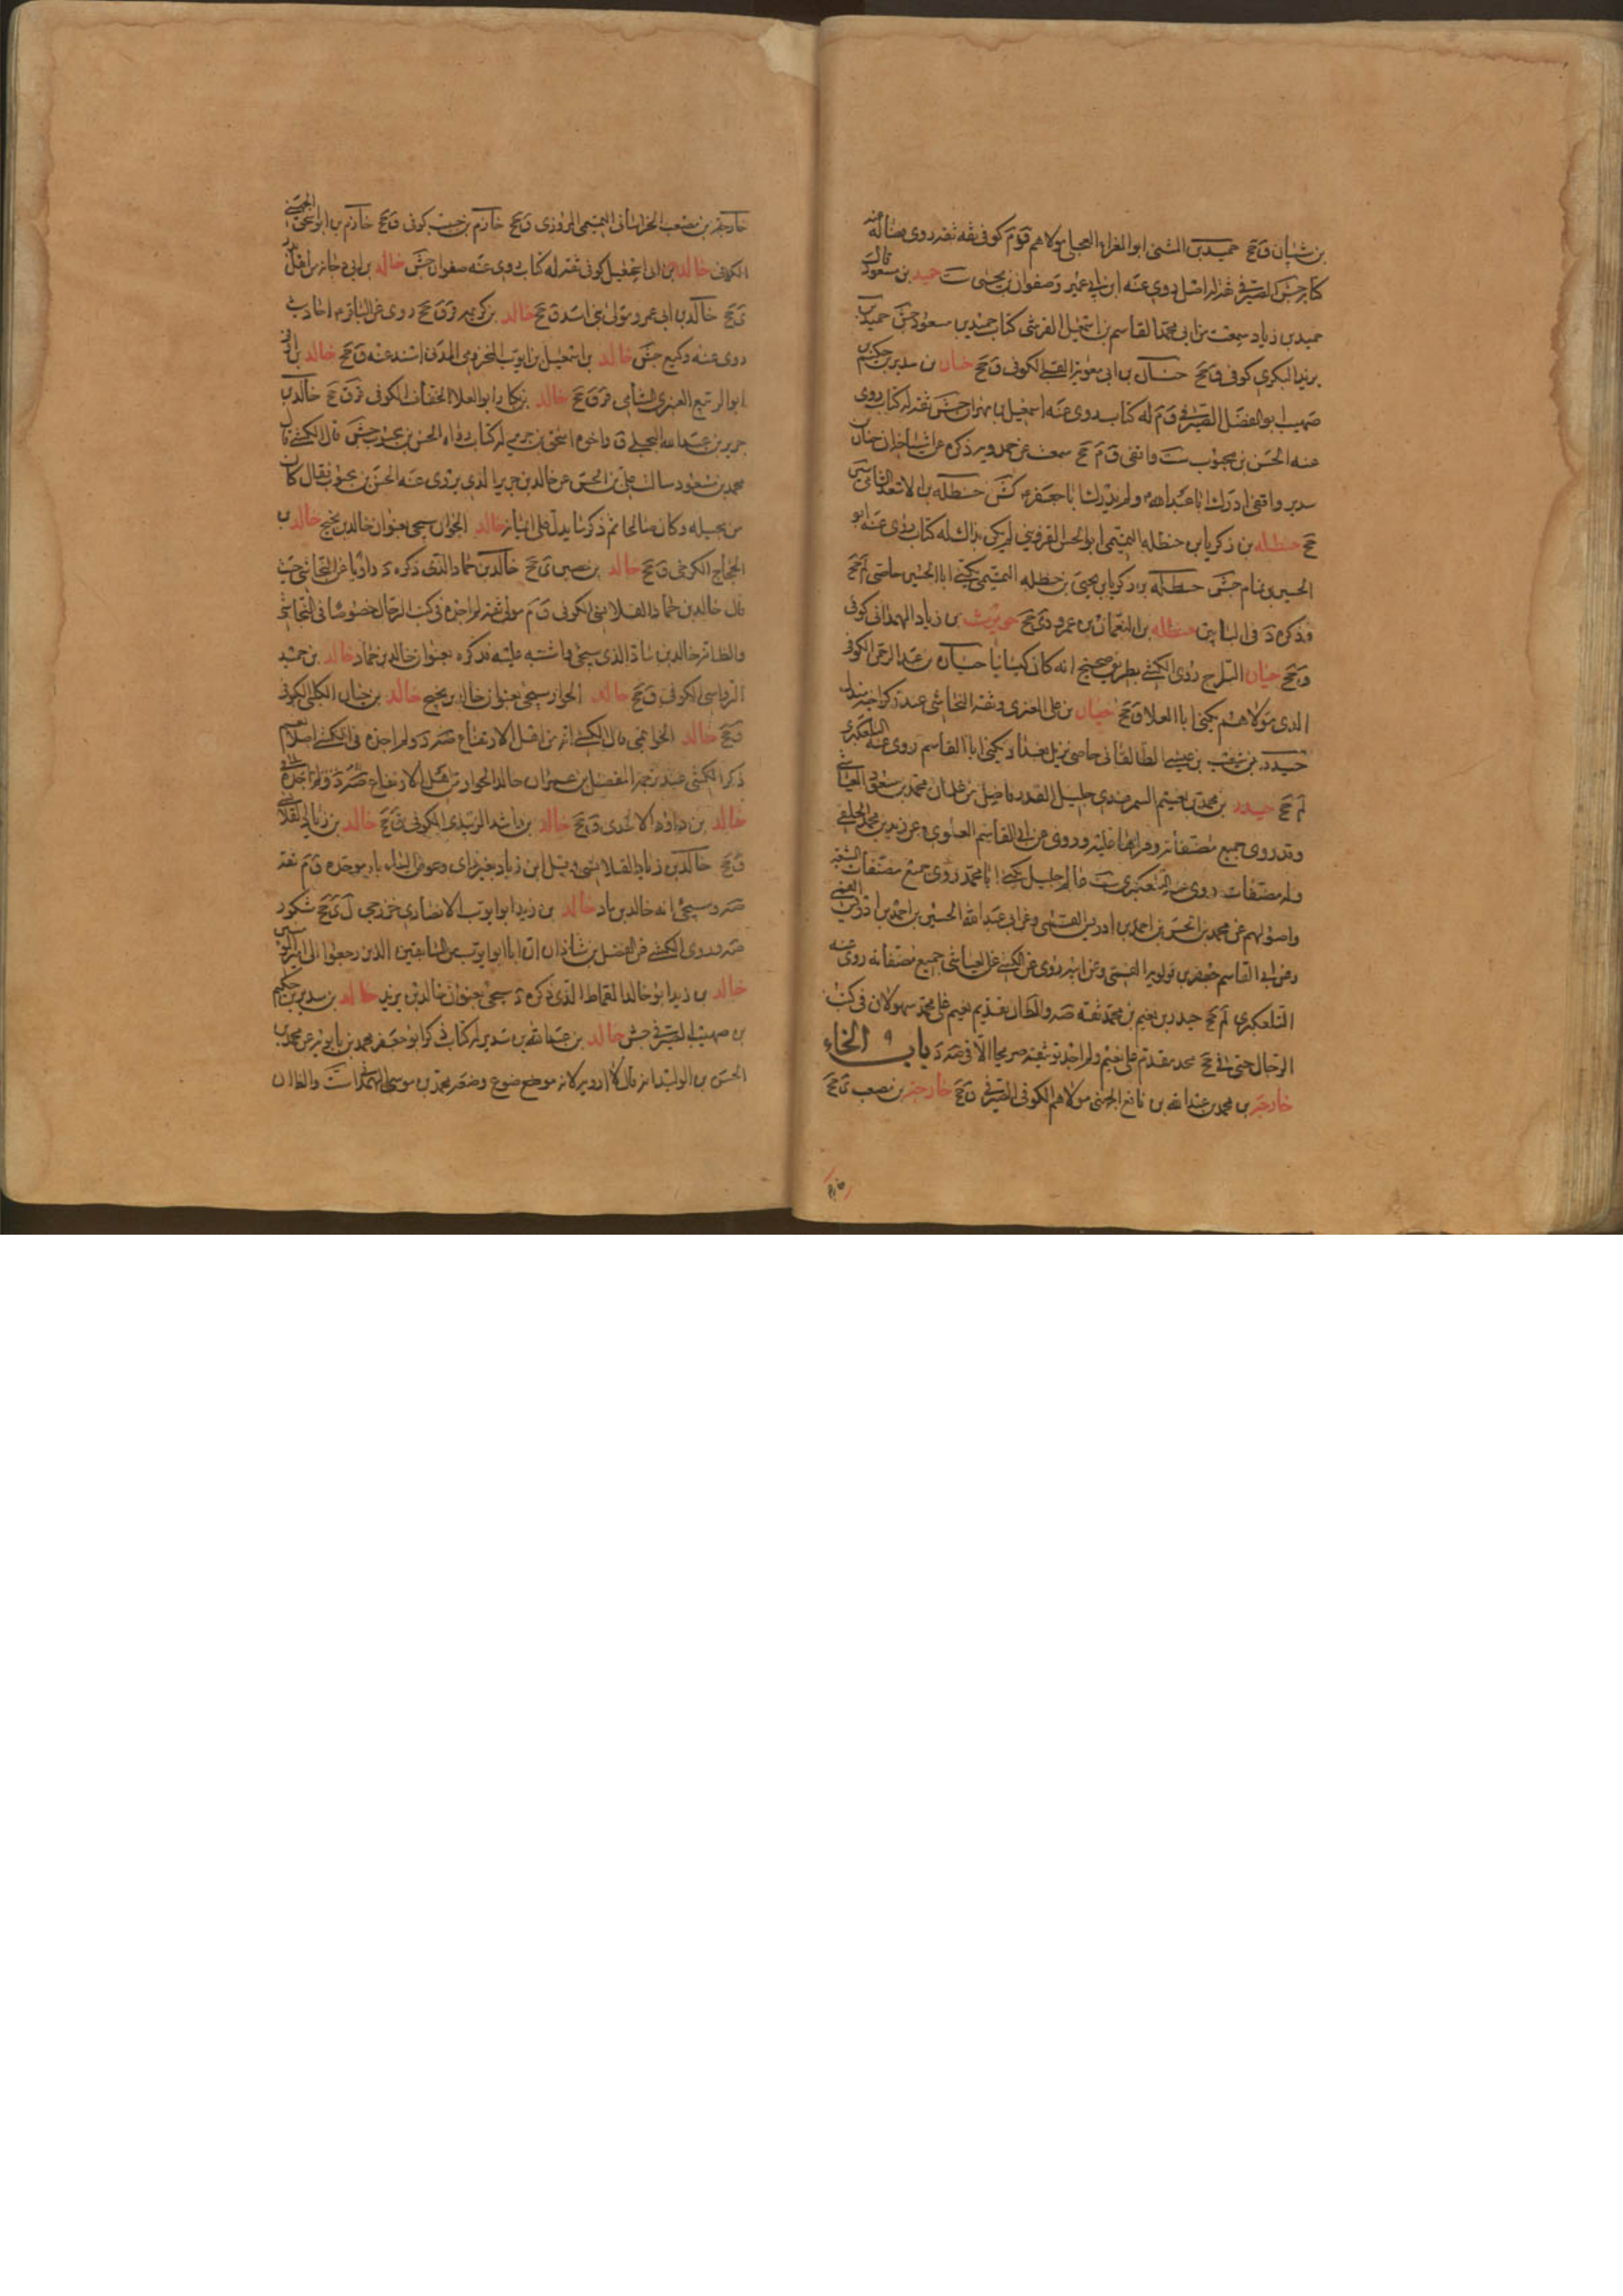 بن شيبان ق جح حميد بن المثنى ابو المغراء العجلى مولاهم ق م كوفى ثقة ثقة روى عنه
كتابه جش الصيرفى ثقة له اصل روى عنه ابن ابى عمير وصفوان بن يحيى ست حميد بن مسعود قال
حميد بن زياد سمعت من ابى محمد القاسم بن اسمعيل القرشى كتاب حميد بن مسعود جش حميد بن
يزيد البكرى كوفى ق جح حنان بن ابى معوية القبى الكوفى ق جح حنان بن سدير بن حكيم بن
صهيب ابو الفضل الصيرفى ق م له كتاب روى عنه اسمعيل بن مهران جش ثقة له كتاب روى
عنه الحسن بن محبوب ست واقفى ق م جح سمعت عن حمدويه ذكره عن اشياخه ان حنان
سدير واقفى ادرك ابا عبد الله ولم يدرك ابا جعفر كش حنظلة بن الاسعد الشامى سين
جح حنظلة بن زكريا بن حنظلة التميمى ابو الحسن القزوينى لم يكن بذاك له كتاب روى عنه ابو
الحسين بن تمام جش حنظلة بن زكريا بن يحيى بن حنظلة التميمى يكنى ابا الحسين خاصى لم جح
وذكره د فى البابين حنظلة بن النعمان بن عمرو ى جح حويرث بن زياد الهمدانى كوفى
ق جح حيان السراج روى الكشى بطريق صحيح انه كان كيسانيا حيان بن عبد الرحمن الكوفى
الذى مولاهم يكنى ابا العلا ق جح حيان بن على العنزى وثقه النجاشى عند ذكر اخيه مندل
حيدر بن شعيب بن عيسى الطالقانى خاصى نزيل بغداد يكنى ابا القاسم روى عنه التلعكبرى
لم جح حيدر بن محمد بن نعيم السمرقندى جليل القدر فاضل من غلمان محمد بن مسعود العياشى
وقد روى جميع مصنفاته وقراها عليه وروى عن ابى القاسم العلوى وعن زيد بن محمد الحلقى
وله مصنفات روى عنه التلعكبرى ست عالم جليل يكنى ابا محمد روى جميع مصنفات الشيعة
واصولهم عن محمد بن الحسن بن احمد بن ادريس القمى وعن ابى عبد الله الحسين بن احمد بن ادريس القمى
وعن ابى القاسم جعفر بن قولويه القمى وعن ابيه روى عن الكشى عن العياشى جميع مصنفاته روى عنه
التلعكبرى لم جح حيدر بن نعيم بن محمد ثقة والظاهر تقديم نعيم على محمد سهو لان فى كتب
الرجال حتى فى جح محمد مقدم على نعيم ولم اجد توثيقه صريحا الا فى باب الخاء
خارجة بن محمد بن عبد الله بن نافع الجهنى مولاهم الكوفى الصيرفى ق جح خارجة بن مصعب ى جح
خارجة بن مصعب الخراسانى التميمى المروزى ق جح خازم بن حبيب كوفى ق جح خازم بن ابراهيم الجهنى
الكوفى خالد بن ابى اسمعيل كوفى ثقة له كتاب روى عنه صفوان جش خالد بن ابى دجانة
ى جح خالد بن ابى عمرو مولى بنى اسد ق جح خالد بن ابى كريمة ق جح روى عن الباقر احاديث
روى عنه وكيع جش خالد بن اسمعيل بن ايوب المخزومى المدنى اسند عنه ق جح خالد بن اوفى
ابو الربيع العنزى الشامى قر ق جح خالد بن بكار ابو العلا الخفاف الكوفى قر ق جح خالد بن
جرير بن عبد الله البجلى ق واخوه اسحق بن جرير له كتاب رواه الحسن بن محبوب جش قال الكشى قال
محمد بن مسعود سالت على بن الحسن عن خالد بن جرير الذى يروى عنه الحسن بن محبوب فقال كان
من بجيلة وكان صالحا ثم ذكر ما يدل على ايمانه خالد الجوان سيجى بعنوان خالد بن نجيح خالد بن
الحجاج الكرخى ق جح خالد بن حصين ى جح خالد بن حماد الذى ذكره د راويا عن النجاشى حيث
قال خالد بن حماد القلانسى الكوفى ق م مولى ثقة لم اجده فى كتب الرجال خصوصا فى النجاشى
والظاهر خالد بن ماد الذى سيجى واشتبه عليه فذكره بعنوان خالد بن حماد خالد بن حميد
الرواسى الكوفى ق جح خالد الحوار سيجى بعنوان خالد بن نجيح خالد بن حيان الكلبى الكوفى
ق جح خالد الخواتيمى قال الكشى انه من اهل الارتفاع د ولم اجده فى الكشى اصلا نعم
ذكر الكشى عند ترجمة المفضل بن عمر ان خالد الجوان من اهل الارتفاع
خالد بن داود الاسدى ق جح خالد بن راشد الزبيدى الكوفى ق جح خالد بن زياد القلانسى
ق جح خالد بن زياد القلانسى وقيل ابن زياد بغير زاى وعوض الياء باء موحدة ق م ثقة
وسيجى انه خالد بن ماد خالد بن زيد ابو ايوب الانصارى خزرجى ل ى جح مشكور
وروى الكشى عن الفضل بن شاذان ان ابا ايوب من السابقين الذين رجعوا الى امير المؤمنين
خالد بن زيد ابو خالد القماط الذى ذكره د سيجى بعنوان خالد بن يزيد خالد بن سدير بن حكيم
بن صهيب الصيرفى جش خالد بن عبد الله بن سدير له كتاب ذكر ابو جعفر محمد بن بابويه عن محمد بن
الحسن بن الوليد انه قال لا ارويه لانه موضوع وضعه محمد بن موسى الهمدانى ست والظاهر ان